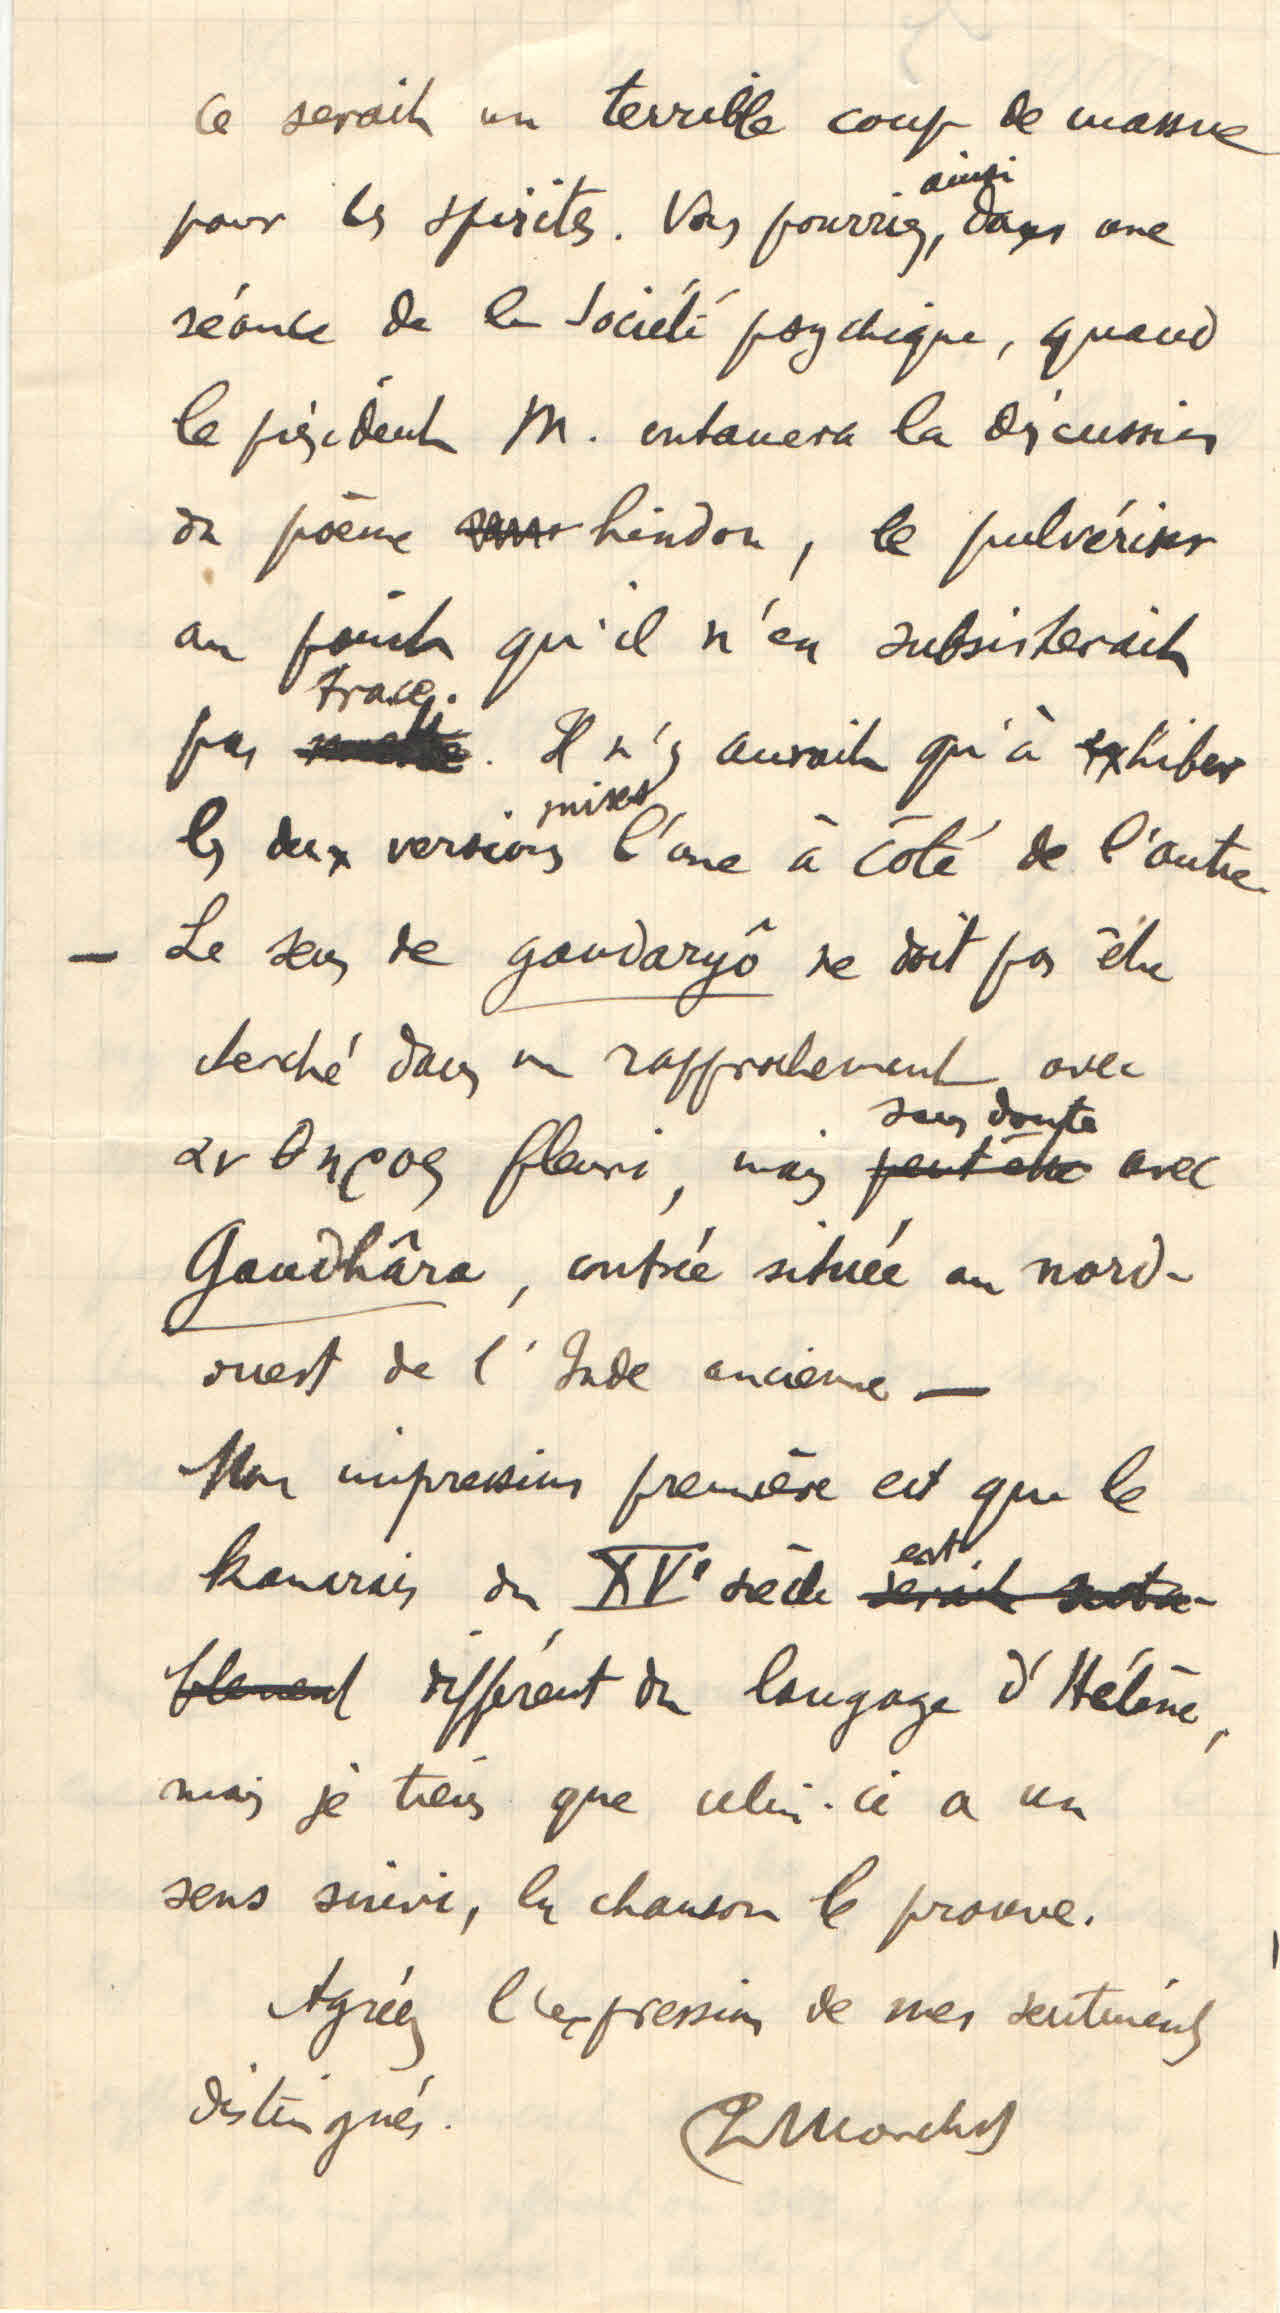 Ce serait un terrible coup de massue
ainsi
pour les spirites. Vous pourriez, dans une
séance de la Société psychique, quand
le président M. entamera la discussion
du poème hindou, le pulvériser
au point qu'il n'en subsisterait
traces.
pas . Il n'y aurait qu'à exhiber
mises
les deux versions l'une à côté de l'autre.
— Le sens de gandaryô ne doit pas être
cherché dans un rapprochement avec
sans doute
ανθηρος fleuri, mais peut être avec
Gandhâra, contrée située au nord-
ouest de l'Inde ancienne —
Mon impression première est que le
kanarais du XVe siècle serait nota-
est
blement différent du langage d'Hélène,
mais je tiens que celui-ci a un
sens suivi, la chanson le prouve.
Agréez l'expression de mes sentiments
distingués.